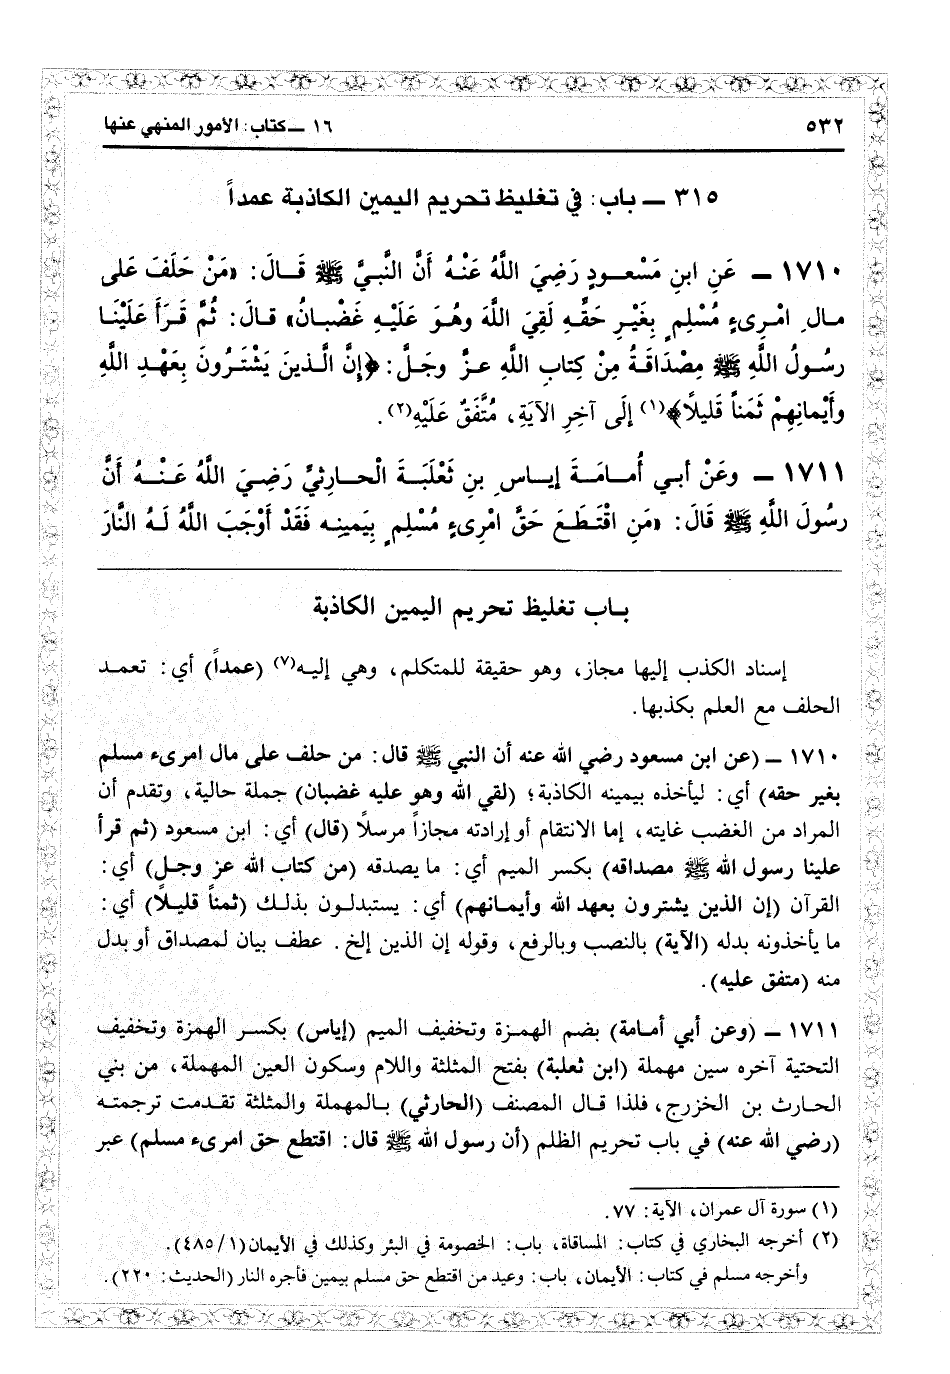 ٥٣٢
١٦ ـ كتاب: الأمور المنهي عنها
٣١٥ ـ باب: في تغليظ تحريم اليمين الكاذبة عمداً
١٧١٠ ـ عَنِ ابنِ مَسْعـودٍ رَضِيَ اللَّهُ عَنْـهُ أَنَّ النَّبيَّ ﷺ قَـالَ: «مَنْ حَلَفَ عَلى
مالِ امْرِىءٍ مُسْلِمٍ بِغَيْرِ حَقِّهِ لَقِيَ اللَّهَ وهُوَ عَلَيْهِ غَضْبانُ» قالَ: ثُمَّ قَرَأَ عَلَيْنَا
رسُولُ اللَّهِ ﷺ مِصْدَاقَهُ مِنْ كِتابِ اللَّهِ عزَّ وجَلَّ: ﴿إنَّ الَّذينَ يَشْتَرُونَ بِعَهْدِ اللَّهِ
وأَيْمانِهِمْ ثَمَناً قَليلاً﴾(١) إلَى آخِرِ الآيَةِ، مُتَّفَقٌ عَلَيْهِ(٢).
١٧١١ ـ وعَنْ أبي أُمـامَـةَ إيـاسِ بنِ ثَعْلَبَـةَ الْحـارِثِيِّ رَضِيَ اللَّهُ عَنْـهُ أَنَّ
رسُولَ اللَّهِ ﷺ قَالَ: «مَنِ اقْتَطَعَ حَقَّ امْرِىءٍ مُسْلِمٍ بِيَمينِه فَقَدْ أَوْجَبَ اللَّهُ لَهُ النَّارَ
باب تغليظ تحريم اليمين الكاذبة
إسناد الكذب إليها مجاز، وهو حقيقة للمتكلم، وهي إليه(٧) (عمداً) أي: تعمد
الحلف مع العلم بكذبها.
١٧١٠ ـ (عن ابن مسعود رضي الله عنه أن النبي ﷺ قال: من حلف على مال امرىء مسلم
بغير حقه) أي: ليأخذه بيمينه الكاذبة؛ (لقي الله وهو عليه غضبان) جملة حالية، وتقدم أن
المراد من الغضب غايته، إما الانتقام أو إرادته مجازاً مرسلاً (قال) أي: ابن مسعود (ثم قرأ
علينا رسول الله ﷺ مصداقه) بكسر الميم أي: ما يصدقه (من كتاب الله عز وجل) أي:
القرآن (إن الذين يشترون بعهد الله وأيمانهم) أي: يستبدلون بذلك (ثمناً قليلاً) أي:
ما يأخذونه بدله (الآية) بالنصب وبالرفع، وقوله إن الذين إلخ. عطف بيان لمصداق أو بدل
منه (متفق عليه).
١٧١١ ـ (وعن أبي أمامة) بضم الهمزة وتخفيف الميم (إياس) بكسر الهمزة وتخفيف
التحتية آخره سين مهملة (ابن ثعلبة) بفتح المثلثة واللام وسكون العين المهملة، من بني
الحارث بن الخزرج، فلذا قال المصنف (الحارثي) بالمهملة والمثلثة تقدمت ترجمته
(رضي الله عنه) في باب تحريم الظلم (أن رسول الله ﷺ قال: اقتطع حق امرىء مسلم) عبر
(١) سورة آل عمران، الآية: ٧٧.
(٢) أخرجه البخاري في كتاب: المساقاة، باب: الخصومة في البئر وكذلك في الأيمان(٤٨٥/١).
وأخرجه مسلم في كتاب: الأيمان، باب: وعيد من اقتطع حق مسلم بيمين فأجره النار (الحديث: ٢٢٠).